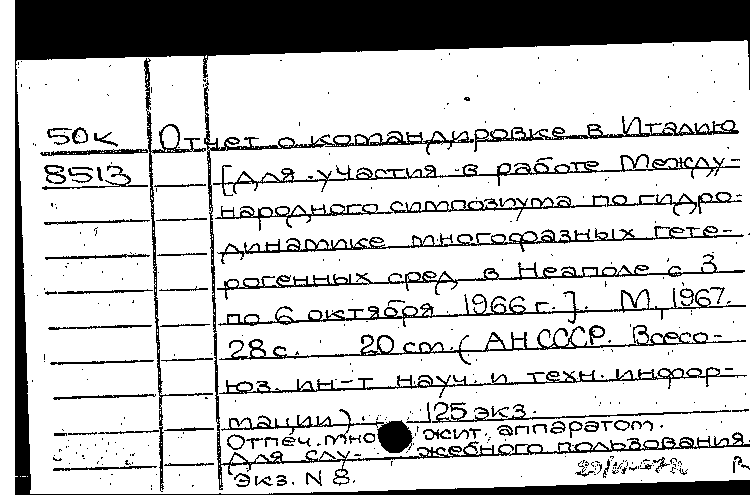 50к Отчет о командировке в Италию
8513 [Для участия в работе Между-
народного симпозиума по гидро-
динамике многофазных гете-
рогенных сред в Неаполе с 3
по 6 октября 1966 г.]. М, 1967.
28 с. 20 см. (АН СССР. Всесо-
юз. ин-т науч. и техн. инфор-
мации). 125 экз.
Отпеч. мно жит. аппаратом.
Для слу- жебного пользования.
Экз. N 8.